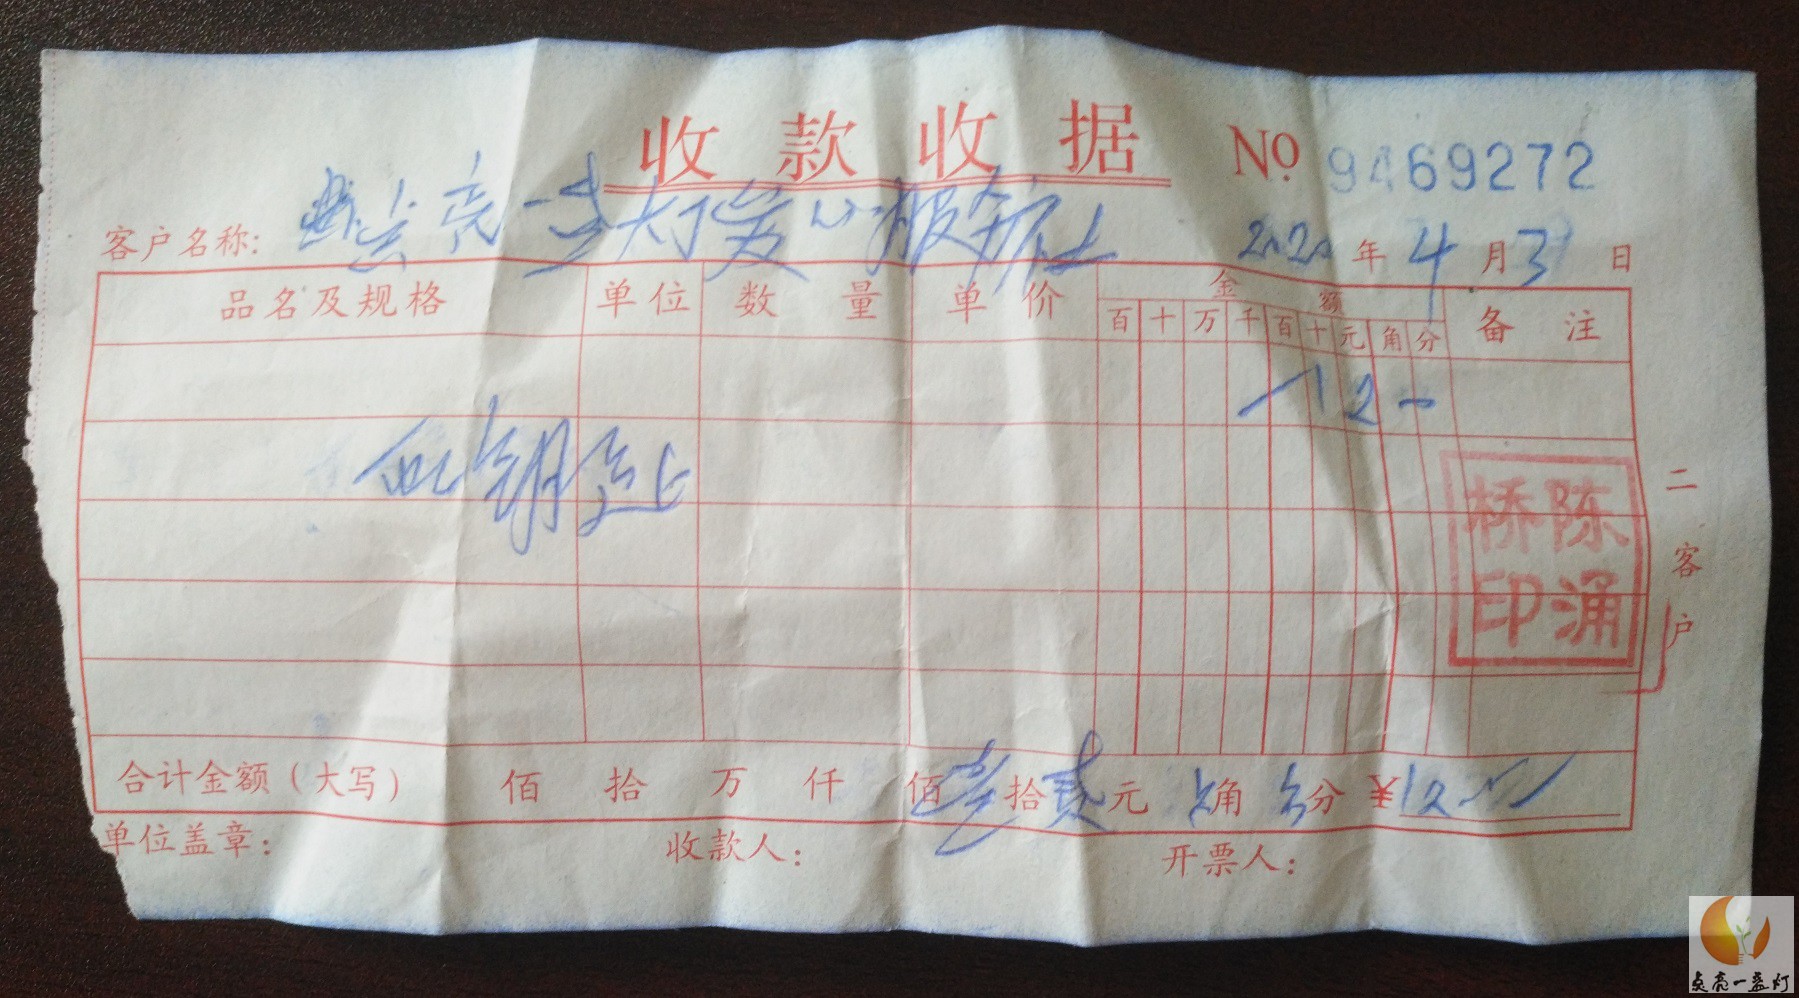 收款收据 No. 9469272
客户名称: 点亮一盏灯爱心服务社 2020年4月3日
品名及规格 单位 数量 单价 金额 备注
百 十 万 千 百 十 元 角 分
12-
配钥匙
陈涌桥印
二客户
合计金额(大写) 佰 拾 万 仟 佰 壹拾贰元 角 分 ¥12
单位盖章: 收款人: 开票人:
点亮一盏灯